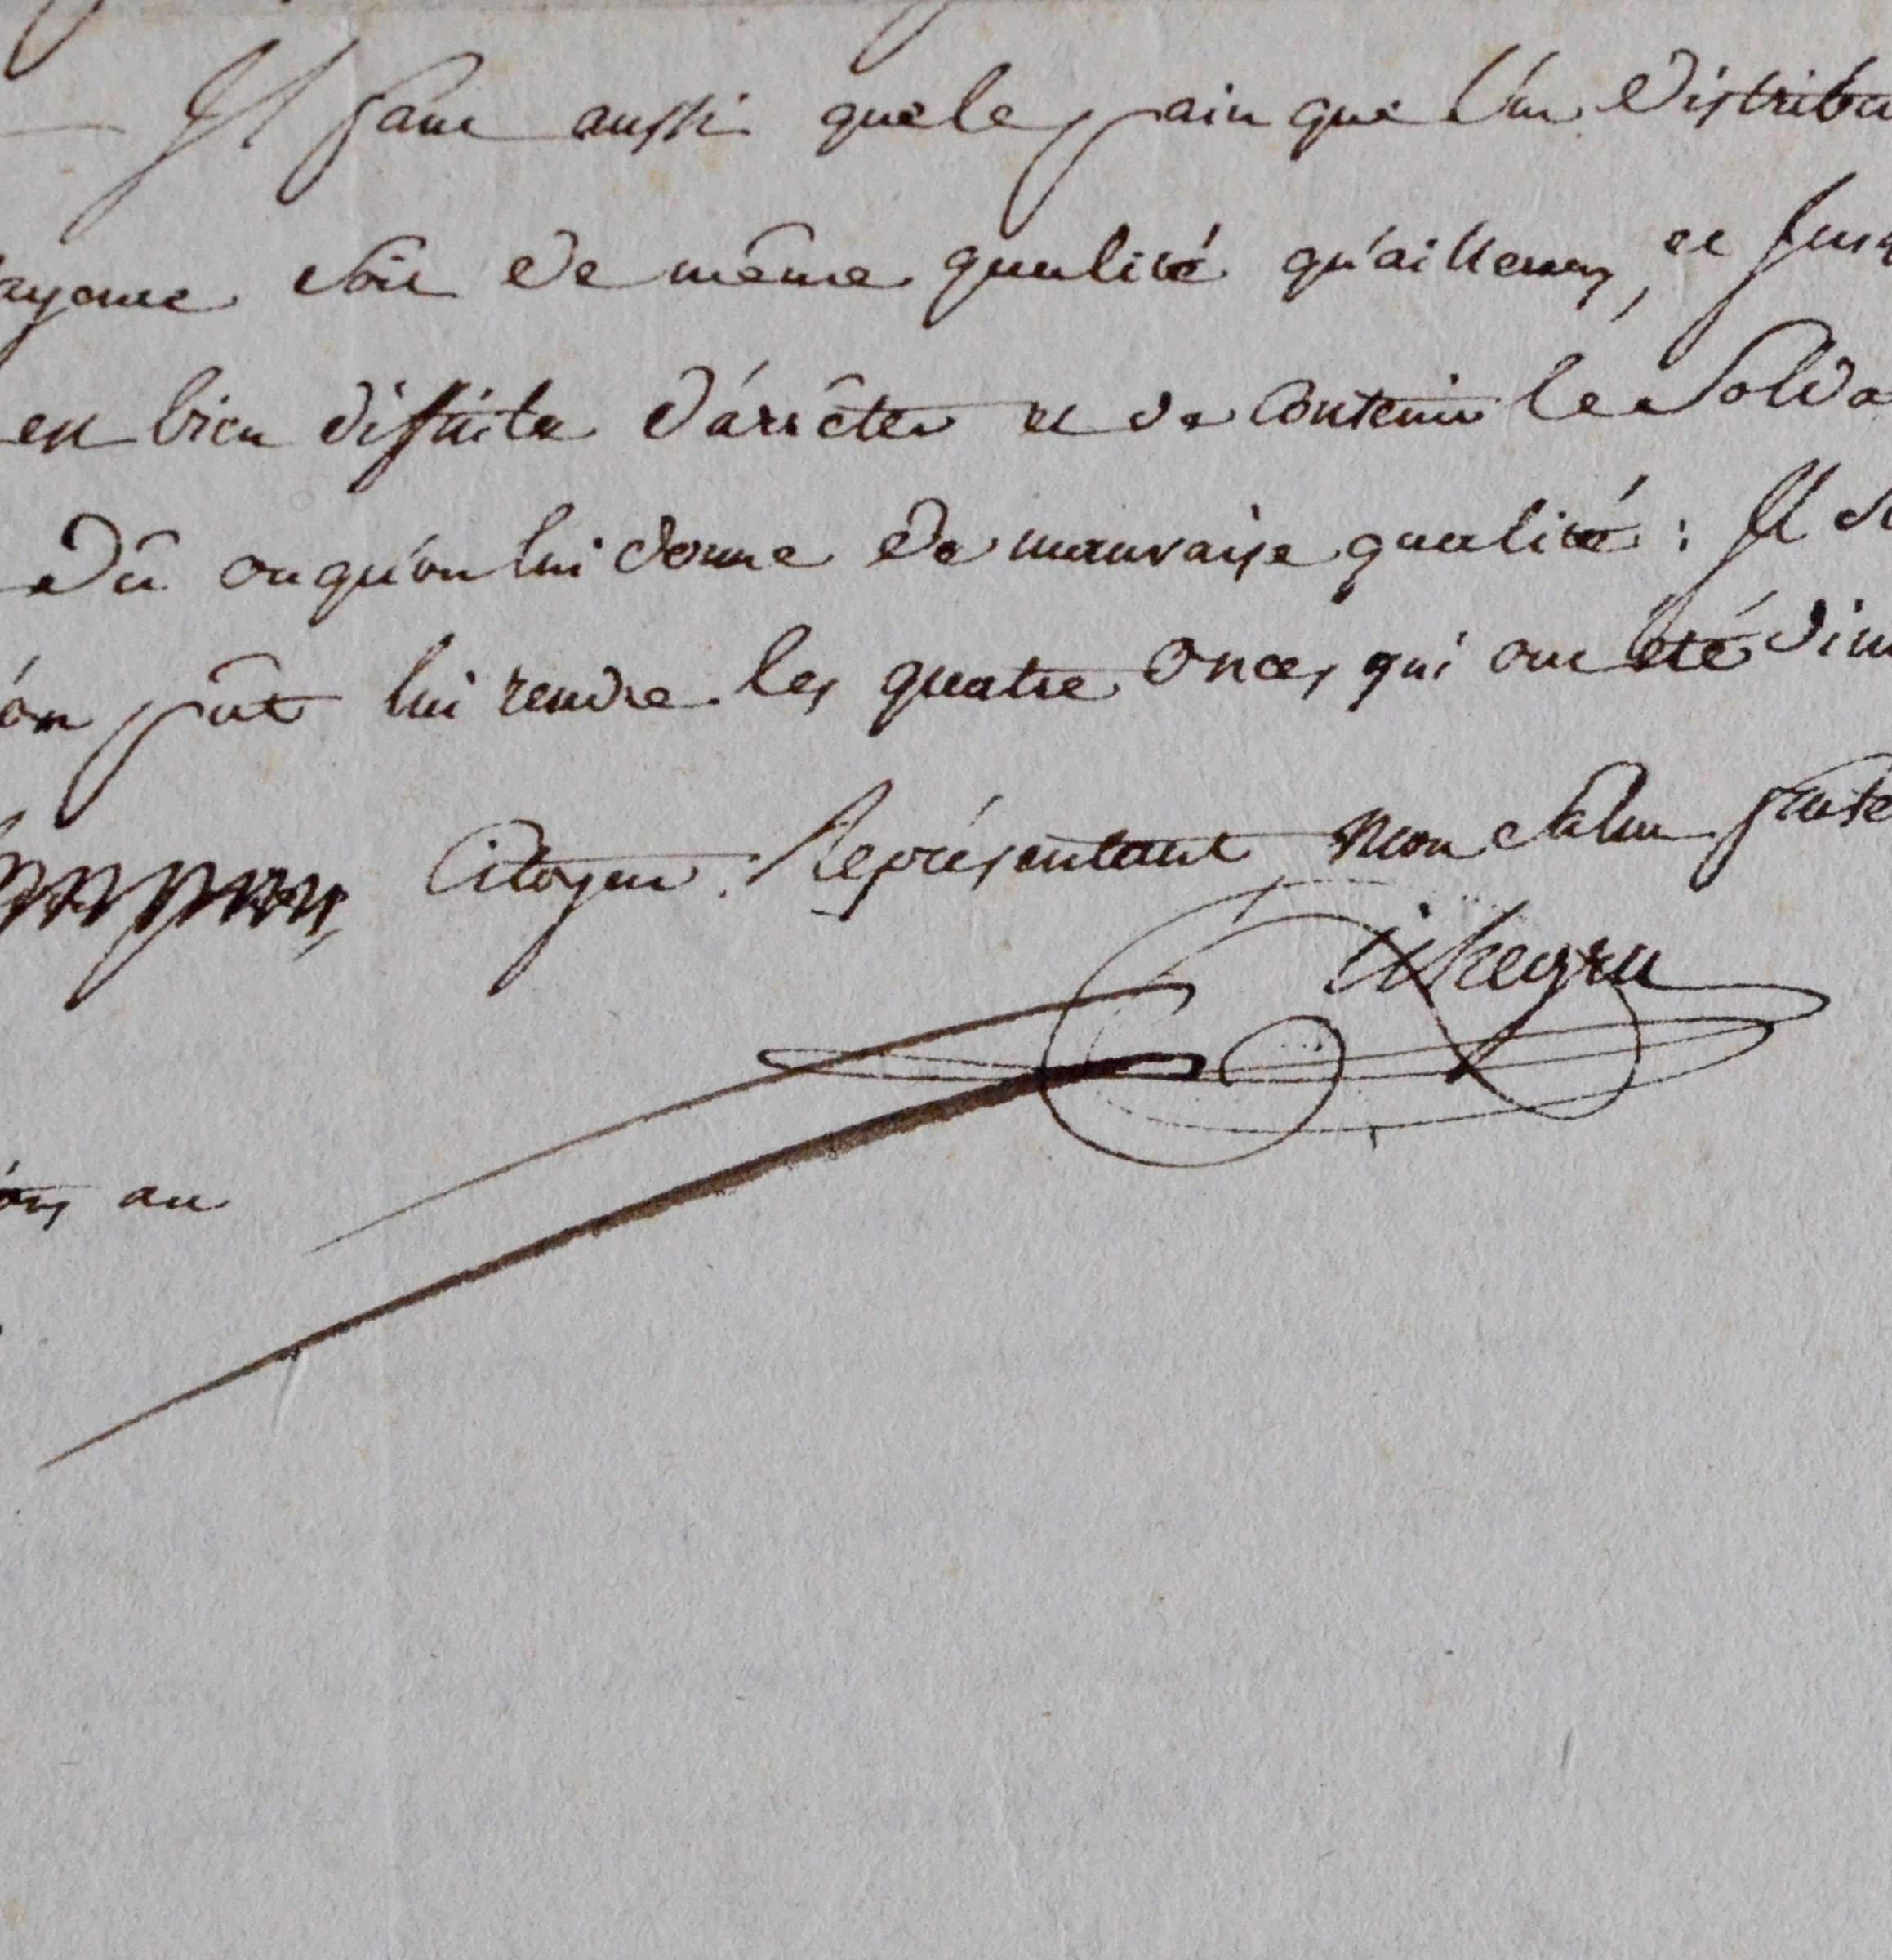 Il faut aussi que le pain que l'on distribu
ayenne soit de même qualité qu'ailleurs, et
est bien difficile d'arrêter et de contenir le Solda
dû ou qu'on lui donne de mauvaise qualité : Il
on pût lui rendre les quatre onces qui ont été dim
Citoyen Représentant mon Salut frate
Pichegru
au